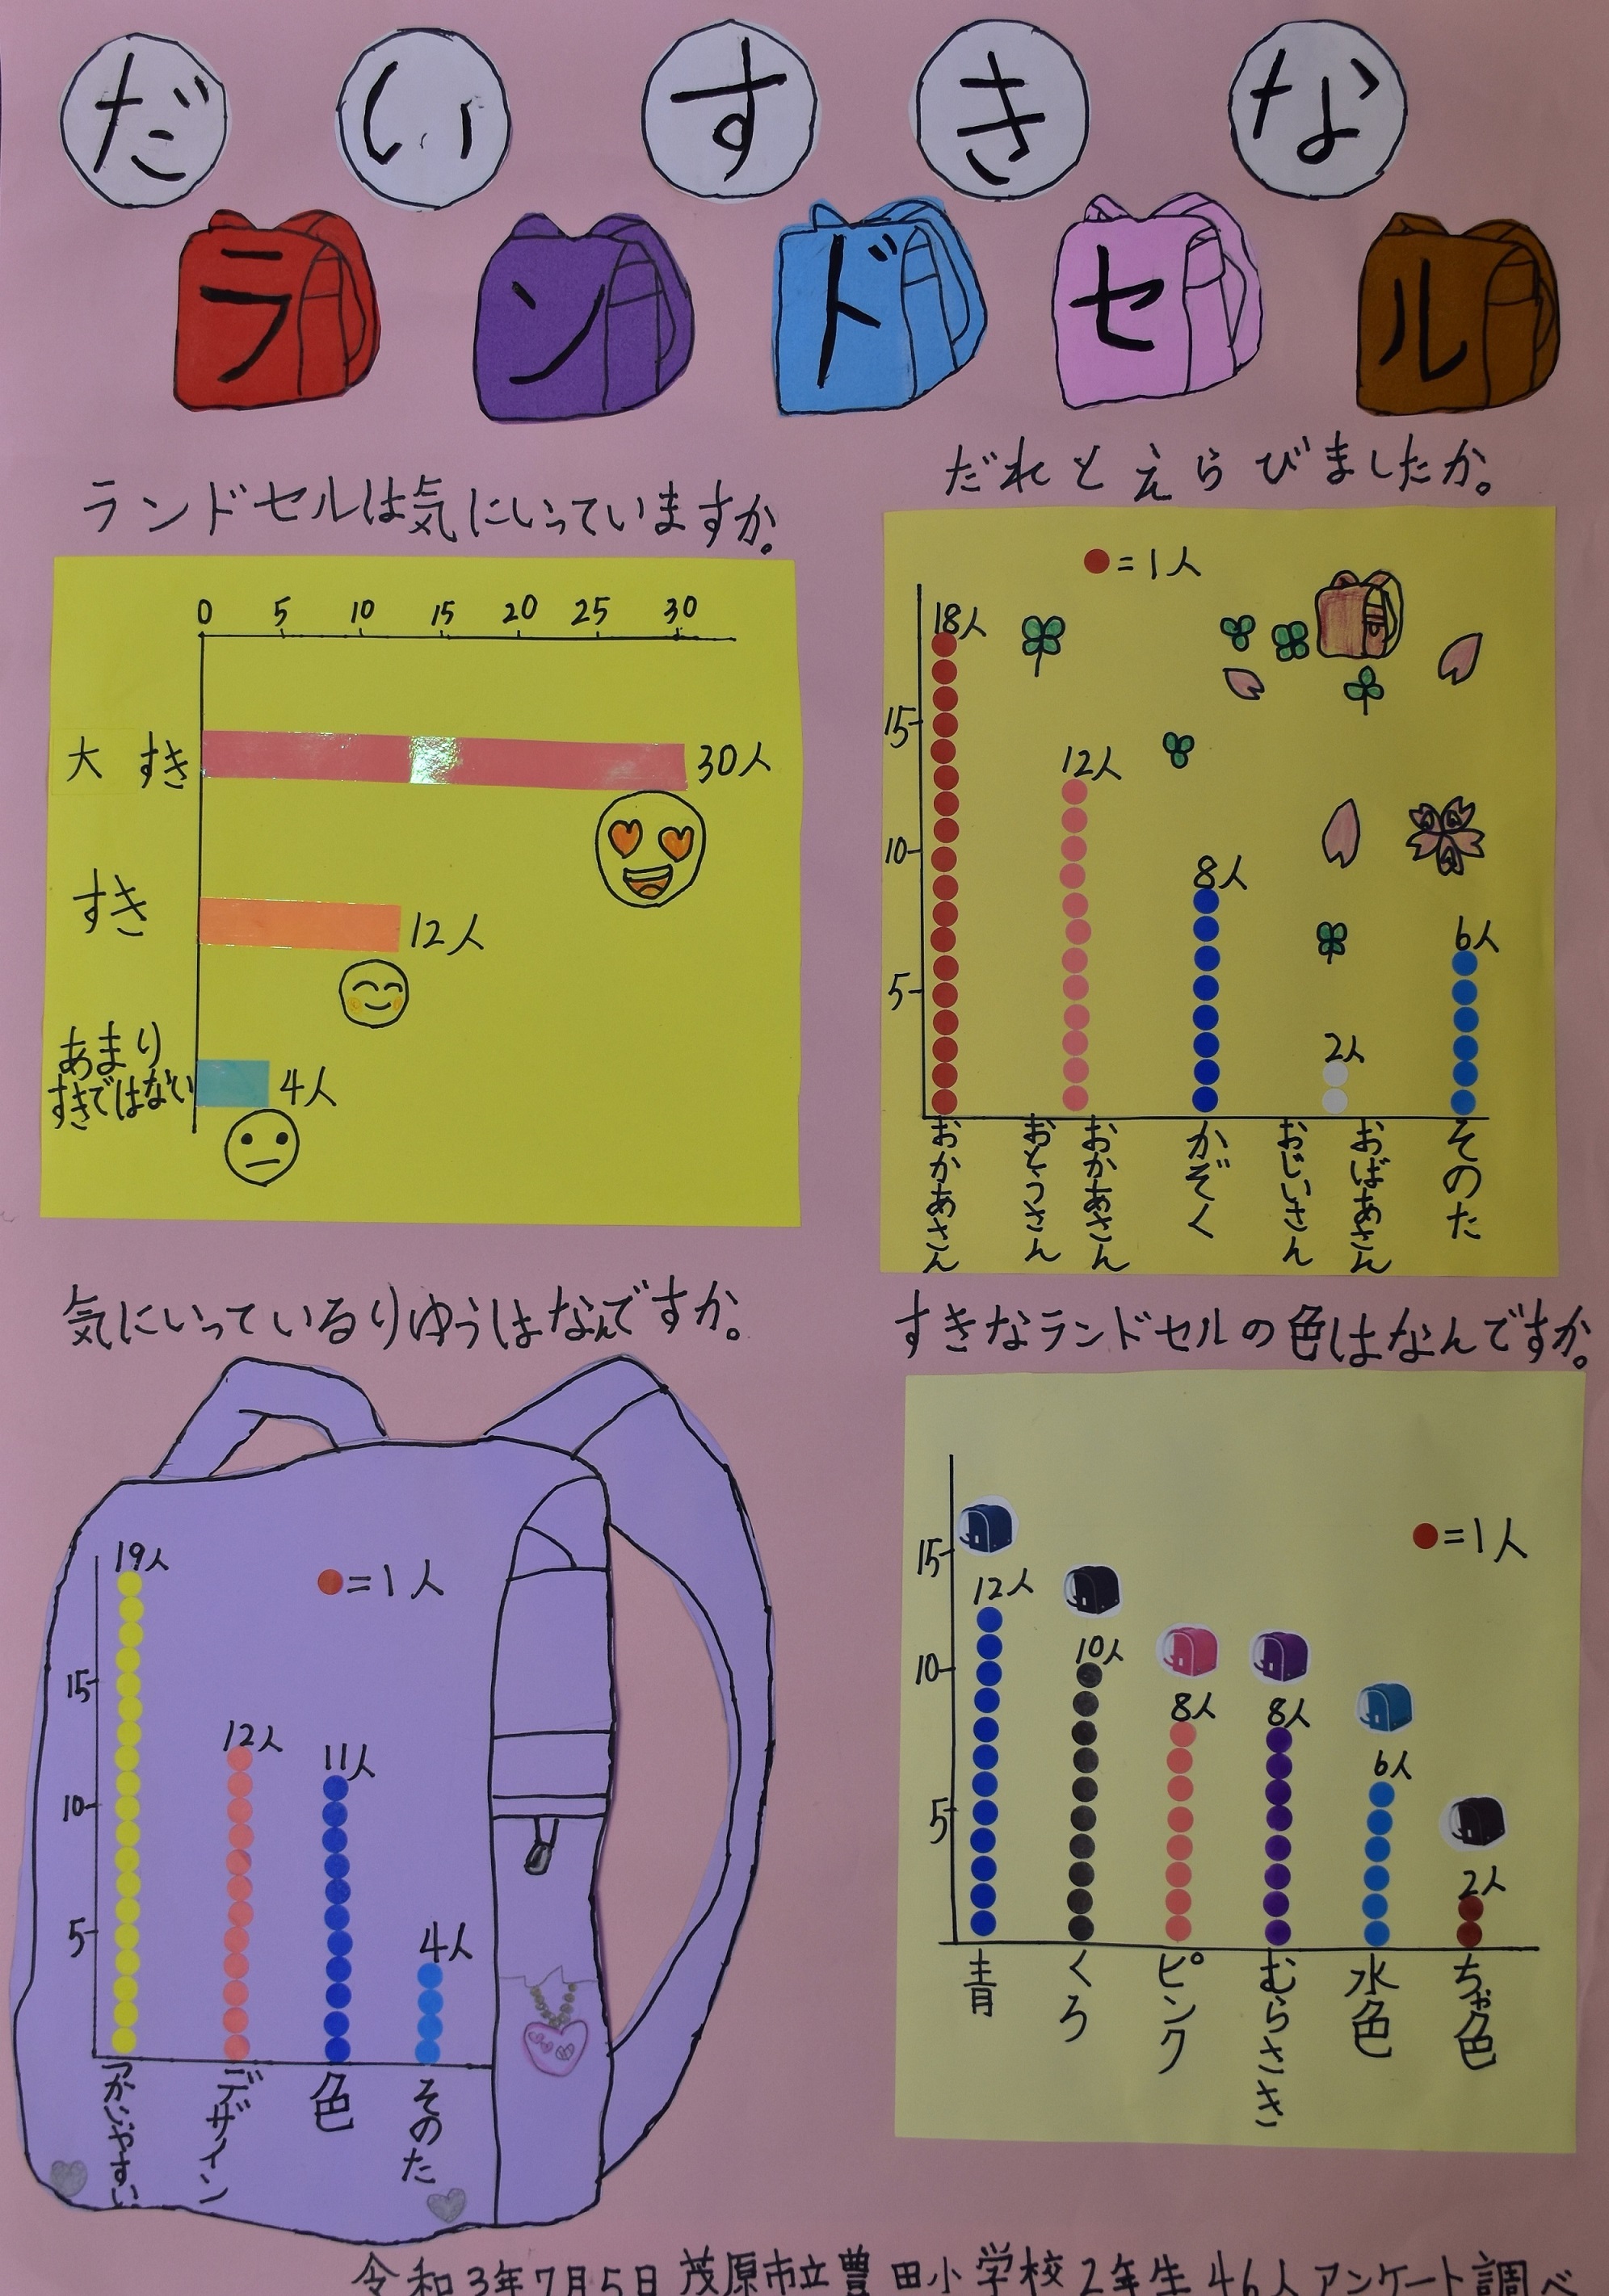 だいすきな
ランドセル
ランドセルは気にいっていますか。
0 5 10 15 20 25 30
大すき 30人
すき 12人
あまり
すきではない 4人
だれとえらびましたか。
●=1人
18人 12人 8人 2人 6人
15
10
5
おかあさん おとうさん おかあさん かぞく おじいさん おばあさん そのた
気にいっているりゆうはなんですか。
●=1人
19人 12人 11人 4人
15
10
5
つかいやすい デザイン 色 そのた
すきなランドセルの色はなんですか。
●=1人
12人 10人 8人 8人 6人 2人
15
10
5
青 くろ ピンク むらさき 水色 ちゃ色
令和3年7月5日 茂原市立豊田小学校2年生46人アンケート調べ